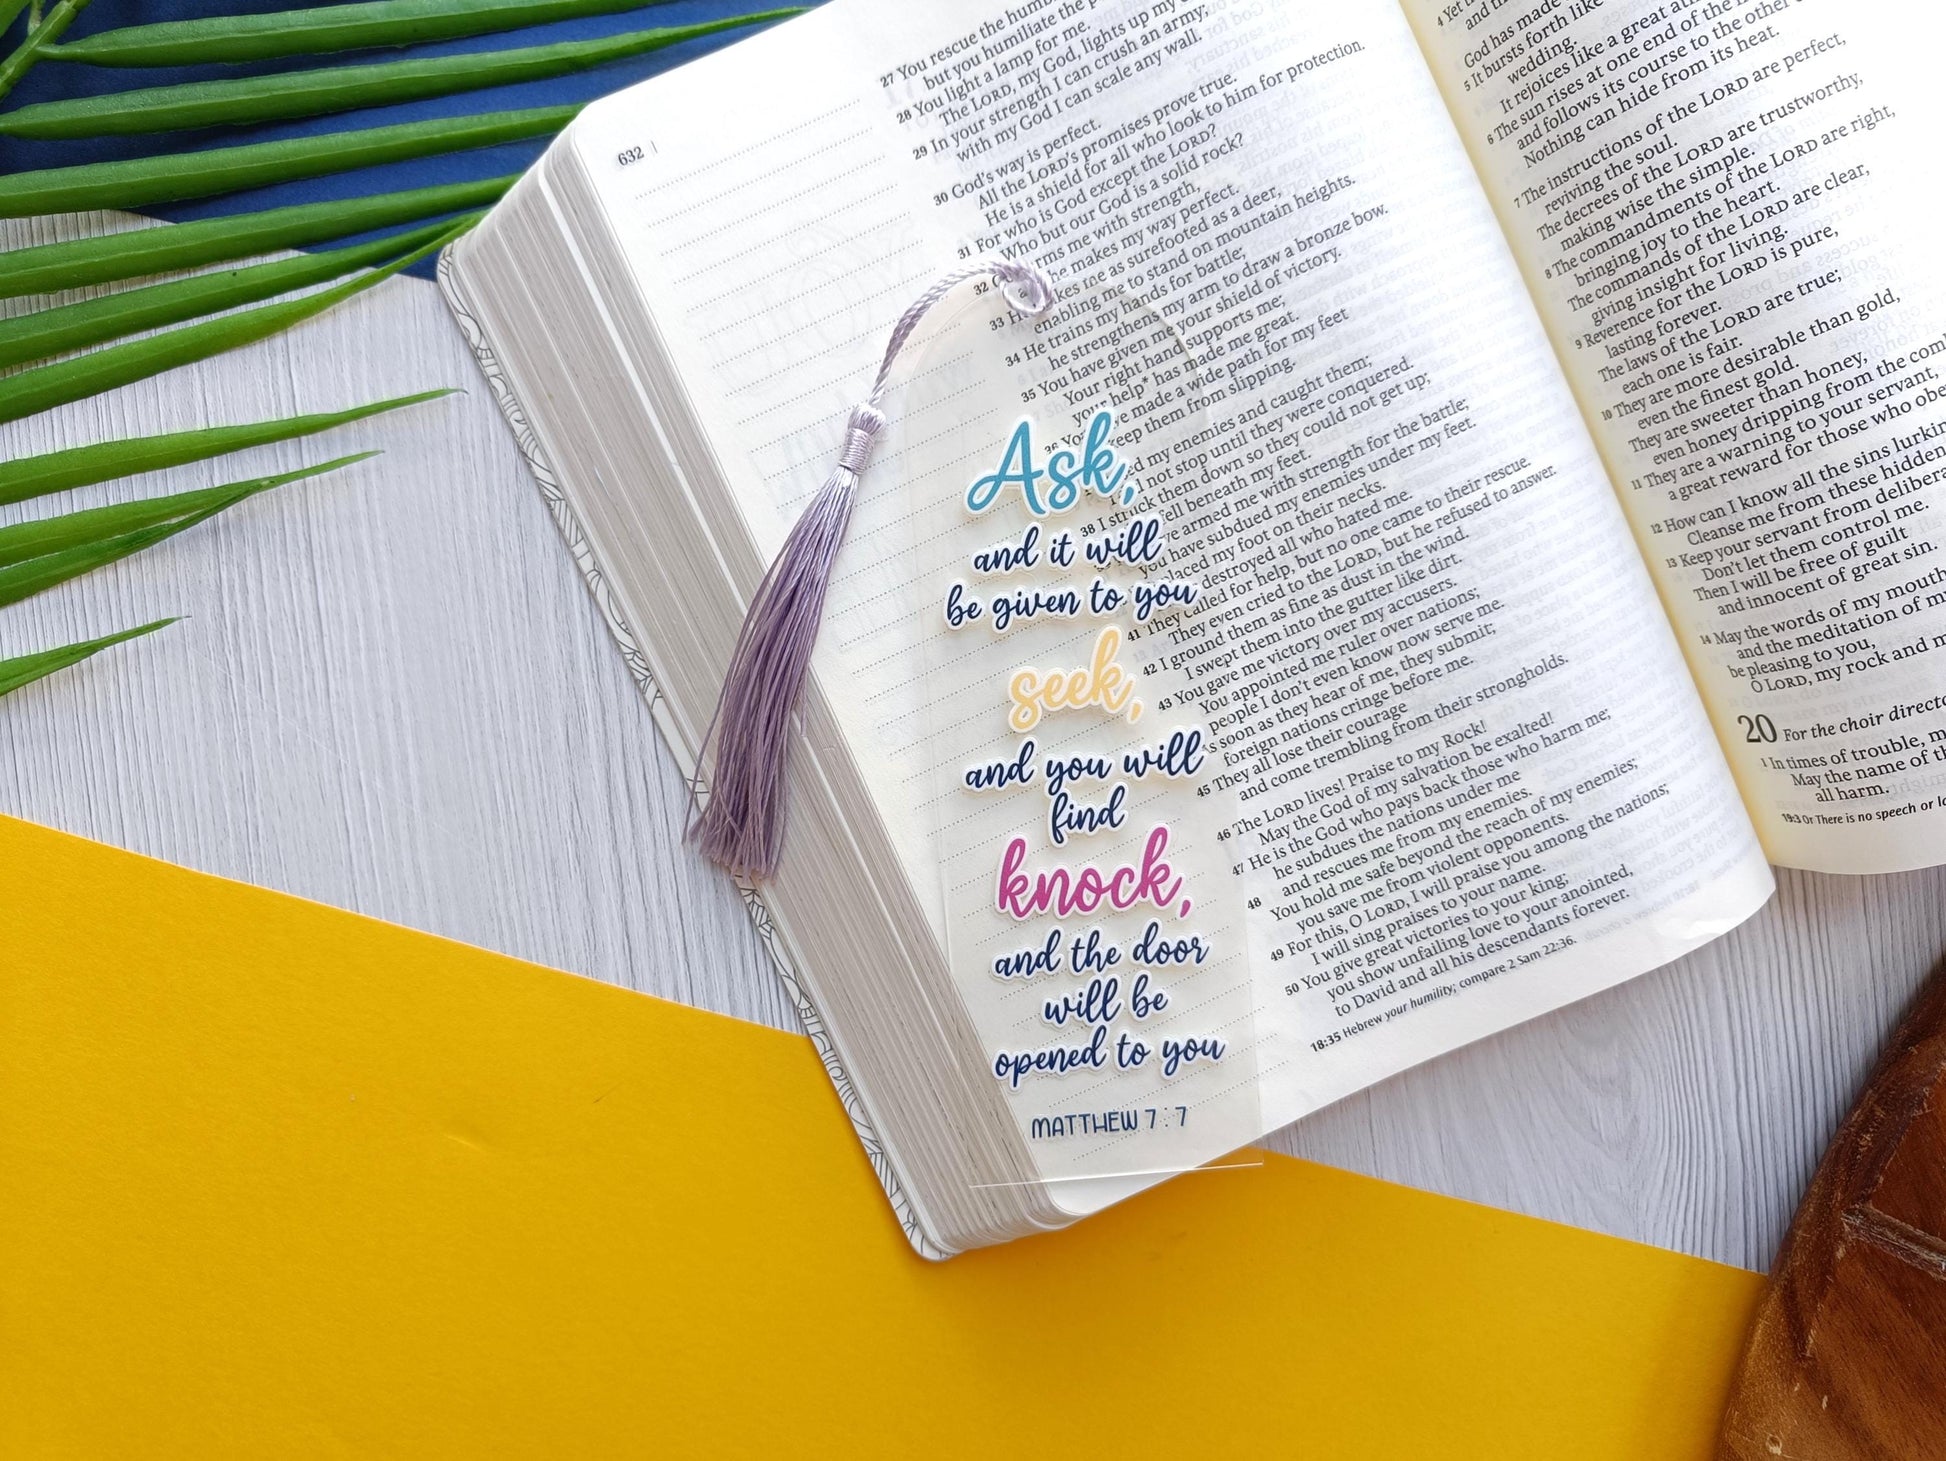 632 |
27 You rescue the humb
but you humiliate the p
28 You light a lamp for me.
The LORD, my God, lights up my
29 In your strength I can crush an army;
with my God I can scale any wall.
30 God's way is perfect.
All the LORD's promises prove true.
He is a shield for all who look to him for protection.
31 For who is God except the LORD?
Who but our God is a solid rock?
32
rms me with strength,
he makes my way perfect.
33 He
kes me as surefooted as a deer,
enabling me to stand on mountain heights.
34 He trains my hands for battle;
he strengthens my arm to draw a bronze bow.
35 You have given me your shield of victory.
Your right hand supports me;
your help* has made me great.
36 You
ve made a wide path for my feet
keep them from slipping.
ed my enemies and caught them;
I did not stop until they were conquered.
38 I struck them down so they could not get up;
fell beneath my feet.
ve armed me with strength for the battle;
you have subdued my enemies under my feet.
placed my foot on their necks.
destroyed all who hated me.
41 They called for help, but no one came to their rescue.
They even cried to the LORD, but he refused to answer.
42 I ground them as fine as dust in the wind.
I swept them into the gutter like dirt.
43 You gave me victory over my accusers.
You appointed me ruler over nations;
people I don't even know now serve me.
soon as they hear of me, they submit;
foreign nations cringe before me.
45 They all lose their courage
and come trembling from their strongholds.
46 The LORD lives! Praise to my Rock!
May the God of my salvation be exalted!
47 He is the God who pays back those who harm me;
he subdues the nations under me
and rescues me from my enemies.
48 You hold me safe beyond the reach of my enemies;
you save me from violent opponents.
49 For this, O LORD, I will praise you among the nations;
I will sing praises to your name.
50 You give great victories to your king;
you show unfailing love to your anointed,
to David and all his descendants forever.
18:35 Hebrew your humility; compare 2 Sam 22:36.
Ask,
and it will
be given to you
seek,
and you will
find
knock,
and the door
will be
opened to you
MATTHEW 7:7
4 Yet
God has made
5 It bursts forth like
wedding.
It rejoices like a great
6 The sun rises at one end of the
and follows its course to the other
Nothing can hide from its heat.
7 The instructions of the LORD are perfect,
reviving the soul.
The decrees of the LORD are trustworthy,
making wise the simple.
8 The commandments of the LORD are right,
bringing joy to the heart.
The commands of the LORD are clear,
giving insight for living.
9 Reverence for the LORD is pure,
lasting forever.
The laws of the LORD are true;
each one is fair.
10 They are more desirable than gold,
even the finest gold.
They are sweeter than honey,
even honey dripping from the com
11 They are a warning to your servant,
a great reward for those who obe
12 How can I know all the sins lurkin
Cleanse me from these hidden
13 Keep your servant from delibera
Don't let them control me.
Then I will be free of guilt
and innocent of great sin.
14 May the words of my mouth
and the meditation of my
be pleasing to you,
O LORD, my rock and m
20 For the choir directo
1 In times of trouble, m
May the name of th
all harm.
19:3 Or There is no speech or la